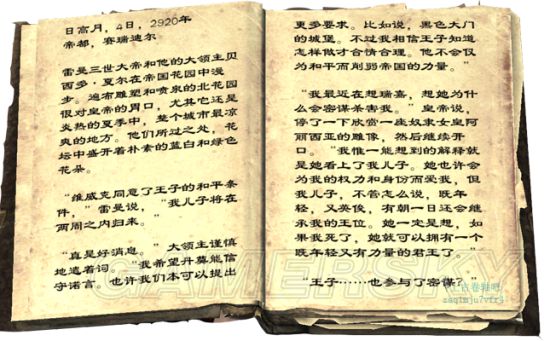 日高月，4日，2920年
帝都，赛瑞迪尔
雷曼三世大帝和他的大领主贝
西多·夏尔在帝国花园中漫
步。遍布雕塑和喷泉的北花园
很对皇帝的胃口，尤其它还是
炎热的夏季中，整个城市最凉
爽的地方。他们所过之处，花
坛中盛开着朴素的蓝白和绿色
花朵。
“维威克同意了王子的和平条
件，”雷曼说，“我儿子将在
两周之内归来。”
“真是好消息。”大领主谨慎
地遣着词。“我希望丹莫能信
守诺言。也许我们本可以提出
更多要求。比如说，黑色大门
的城堡。不过我相信王子知道
怎样做才合情合理。他不会仅
为和平而削弱帝国的力量。”
“我最近在想瑞嘉，想她为什
么会密谋杀害我。”皇帝说，
停了一下欣赏一座奴隶女皇阿
丽西亚的雕像，然后继续开
口。“我惟一能想到的解释就
是她看上了我儿子。她也许会
为我的权力和身份而爱我，但
我儿子，不管怎么说，既年
轻，又英俊，有朝一日还会继
承我的王位。她一定是想，如
果我死了，她就可以拥有一个
既年轻又有力量的君王了。”
“王子……也参与了密谋？”
GAMERSKY
上古卷轴吧